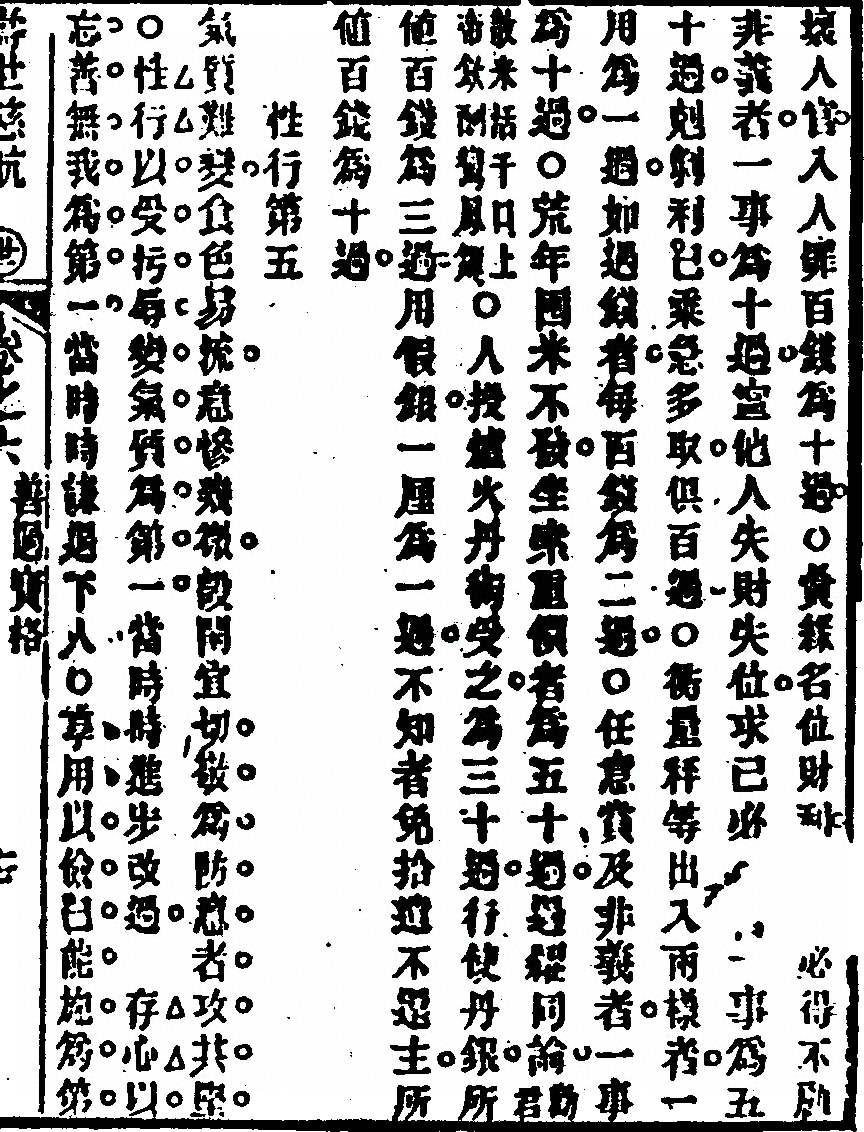 壞人官入人罪百錢為十過○貪緣名位財利 必得不顧
非義者一事為十過害他人失財失位求己必 一事為五
十過剋剝利己乘急多取俱百過○衡量秤等出入兩樣者一
用為一過如過錢者每百錢為二過○任意費及非義者一事
為十過○荒年囤米不發坐索重價者為五十過過糴同論勸君
散米括千口上 過○人授爐火丹術受之為三十過行使丹銀所
值百錢為三過用假銀一厘為一過不知者免拾遺不還主所
值百錢為十過
性行第五
氣質難變食色易流忿慘幾微 閒宜切敬為防意者攻其堅
○性行以受污辱變氣質為第一當時時進步改過 存心以
忘善無我為第一當時時謙過下人○享用以儉己能施為第
濟世慈航 世 卷之六
善過寶格